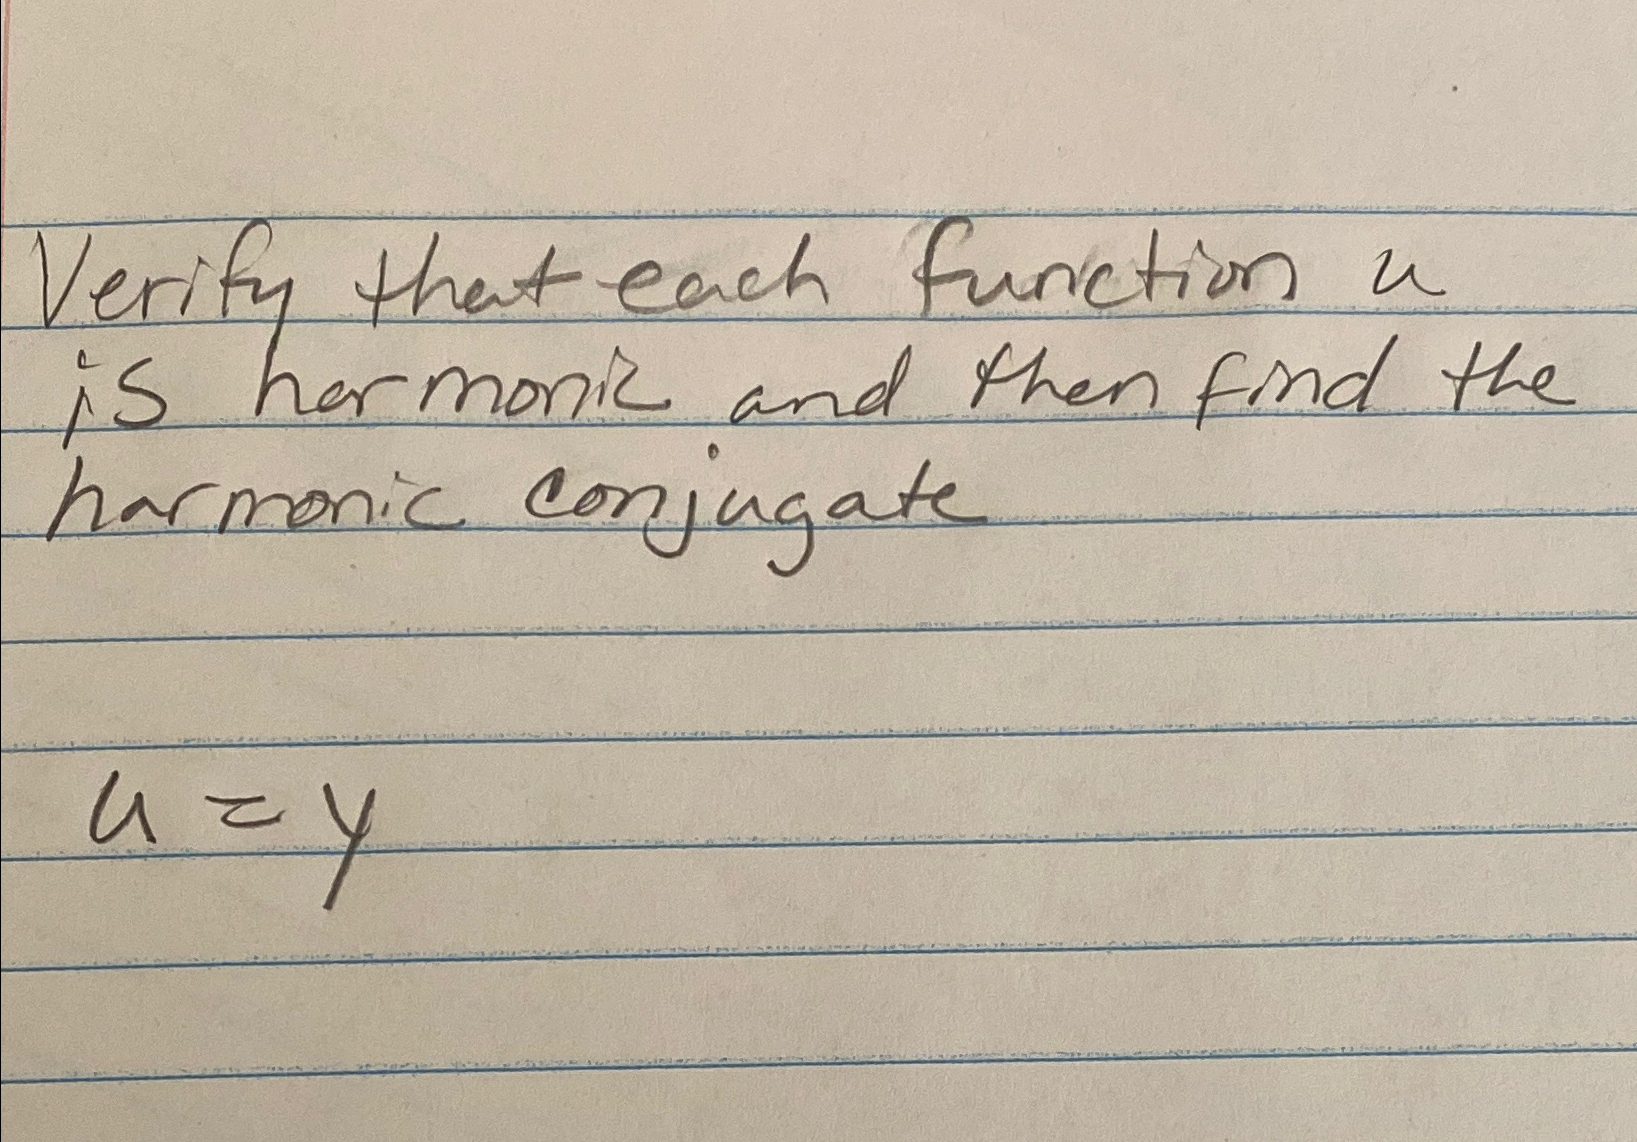 Verify that each function u
is harmonic and then find the
harmonic conjugate
u = y